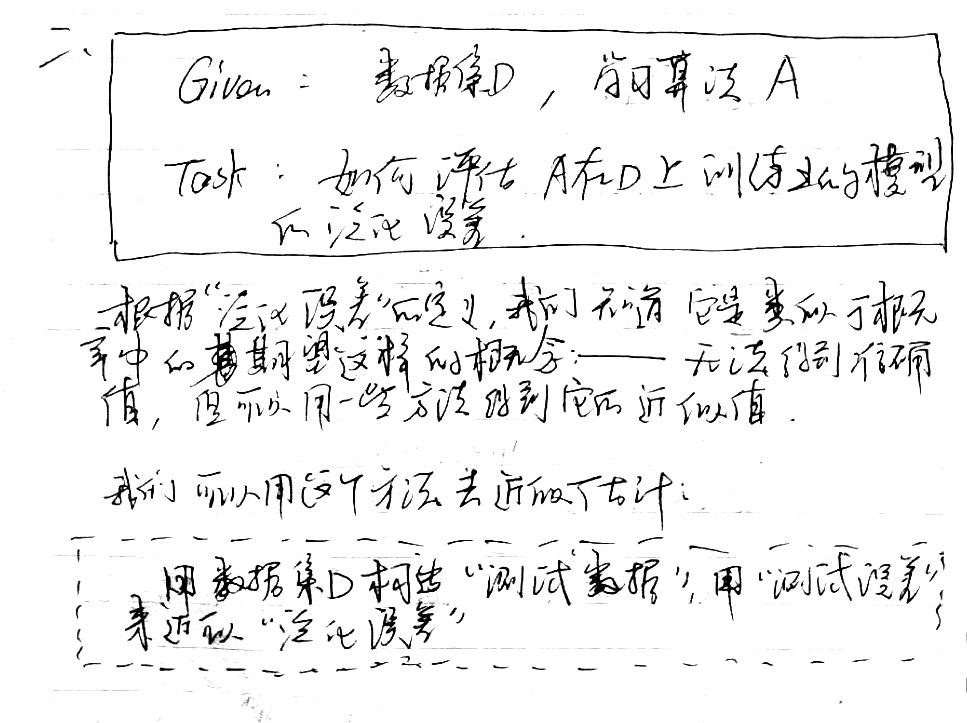 二、
Given : 数据集D , 学习算法 A
Task : 如何 评估 A在D上 训练出的模型
的 泛化 误差 .
根据“泛化 误差”的定义, 我们 知道 它是 类似 于概
率中的 期望这样 的概念 : —— 无法得到 准确
值, 但可以 用一些 方法 得到 它的 近似值 .
我们 可以用这个 方法 去 近似 估计 :
用 数据集D 构造“测试 数据”, 用“测试误差”
来近似“泛化 误差”